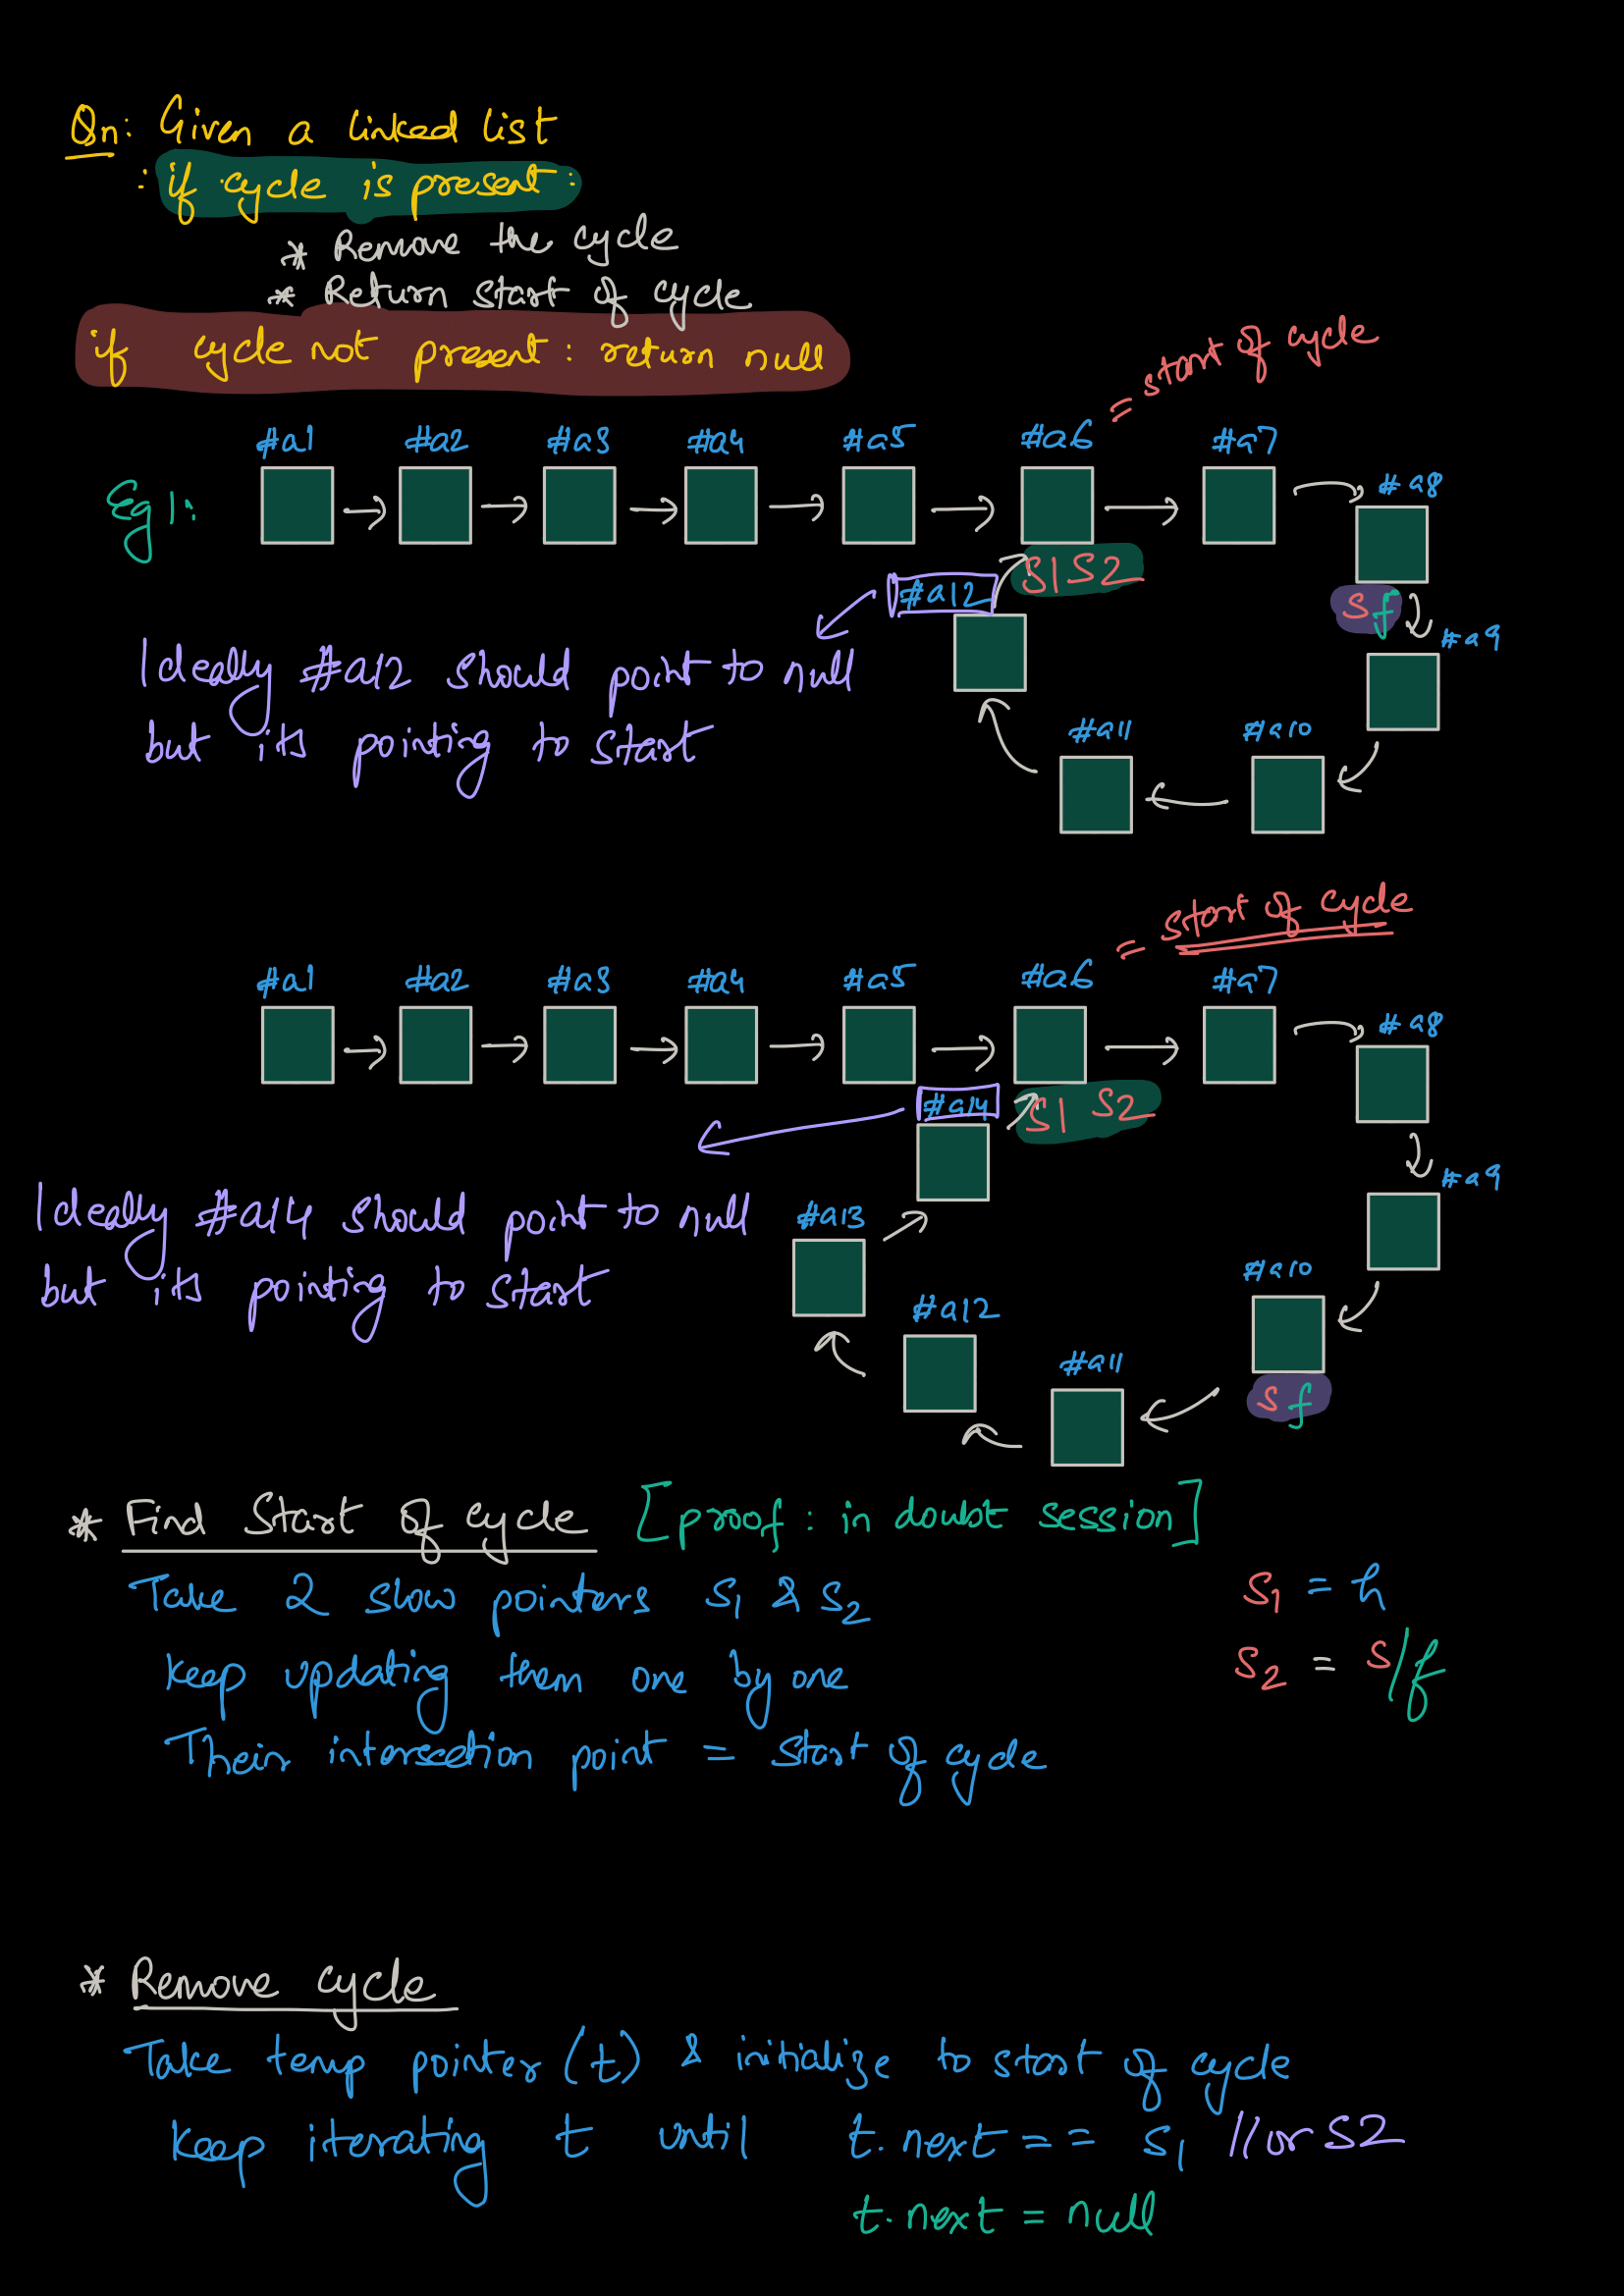 Qn: Given a linked list
: if cycle is present:
* Remove the cycle
* Return start of cycle
if cycle not present: return null
= start of cycle
#a1 #a2 #a3 #a4 #a5 #a6 #a7
#a8
Eg1:
S1 S2
#a12
s f
#a9
Ideally #a12 should point to null
but its pointing to start
#a11 #a10
= start of cycle
#a1 #a2 #a3 #a4 #a5 #a6 #a7
#a8
#a14 S1 S2
#a9
Ideally #a14 should point to null
#a13
but its pointing to start
#a10
#a12
#a11
s f
* Find Start of cycle [proof: in doubt session]
Take 2 slow pointers s1 & s2
s1 = h
keep updating them one by one
s2 = s/f
Their intersection point = start of cycle
* Remove cycle
Take temp pointer (t) & initialize to start of cycle
keep iterating t until t.next == s1 // or s2
t.next = null